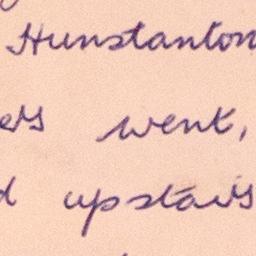 Hunstanton
ers went,
d upstairs